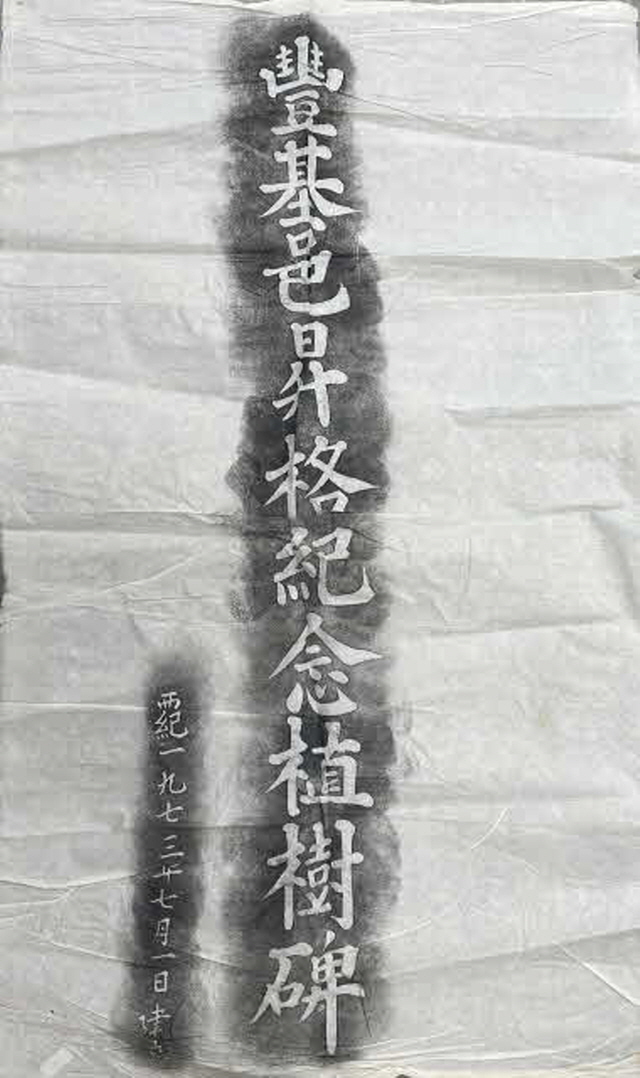 豐基邑昇格紀念植樹碑
西紀一九七三年七月一日